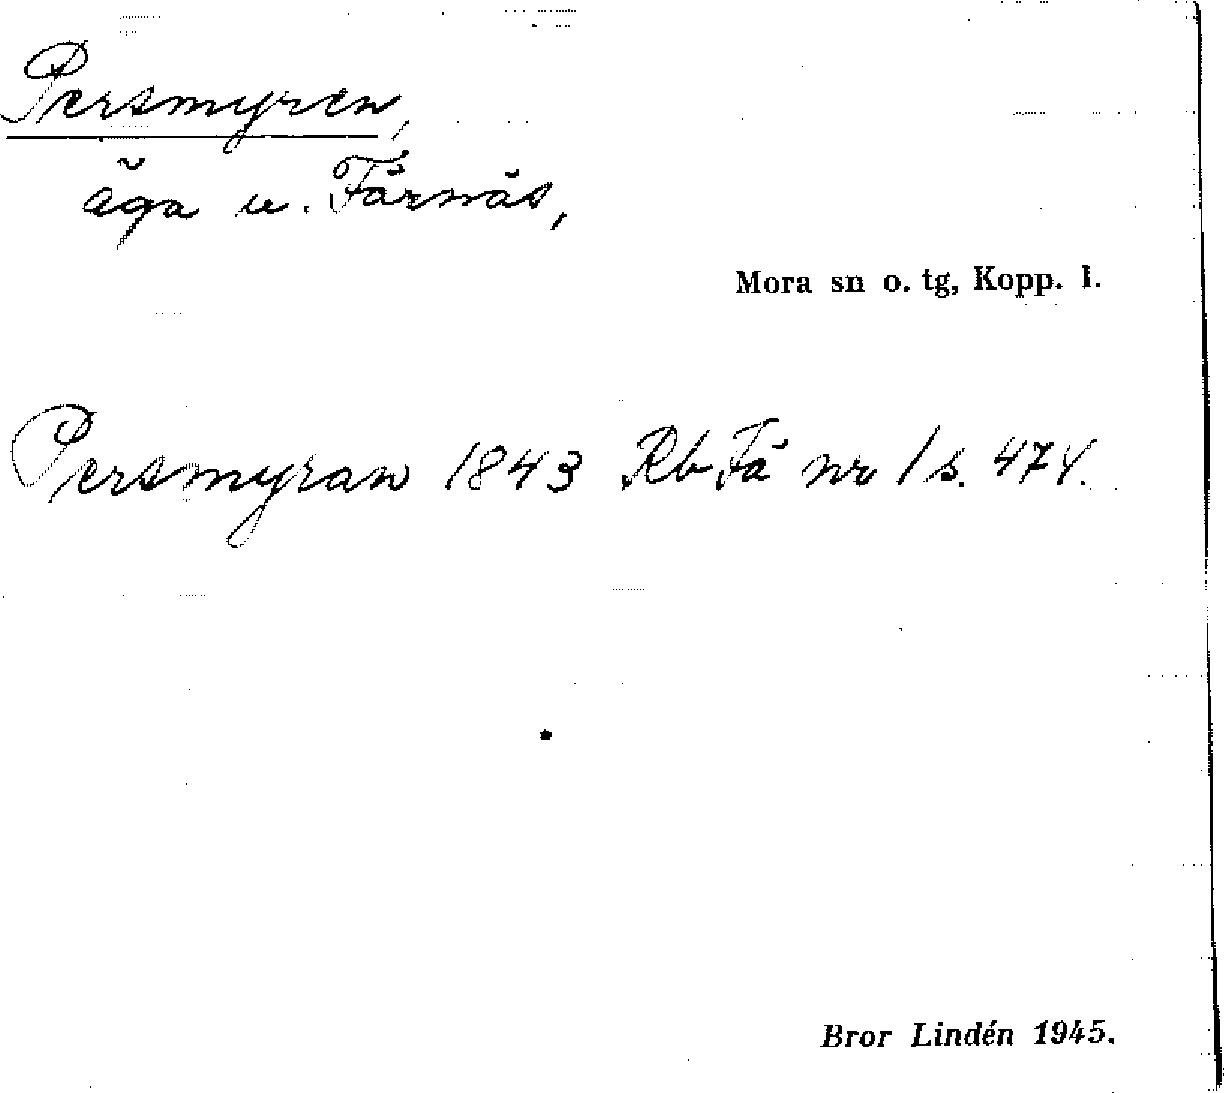 Persmyren,
äga u. Färnäs,
Mora sn o. tg, Kopp. l.
Persmyran 1843 Rb Fä nr 1 s. 474.
Bror Lindén 1945.